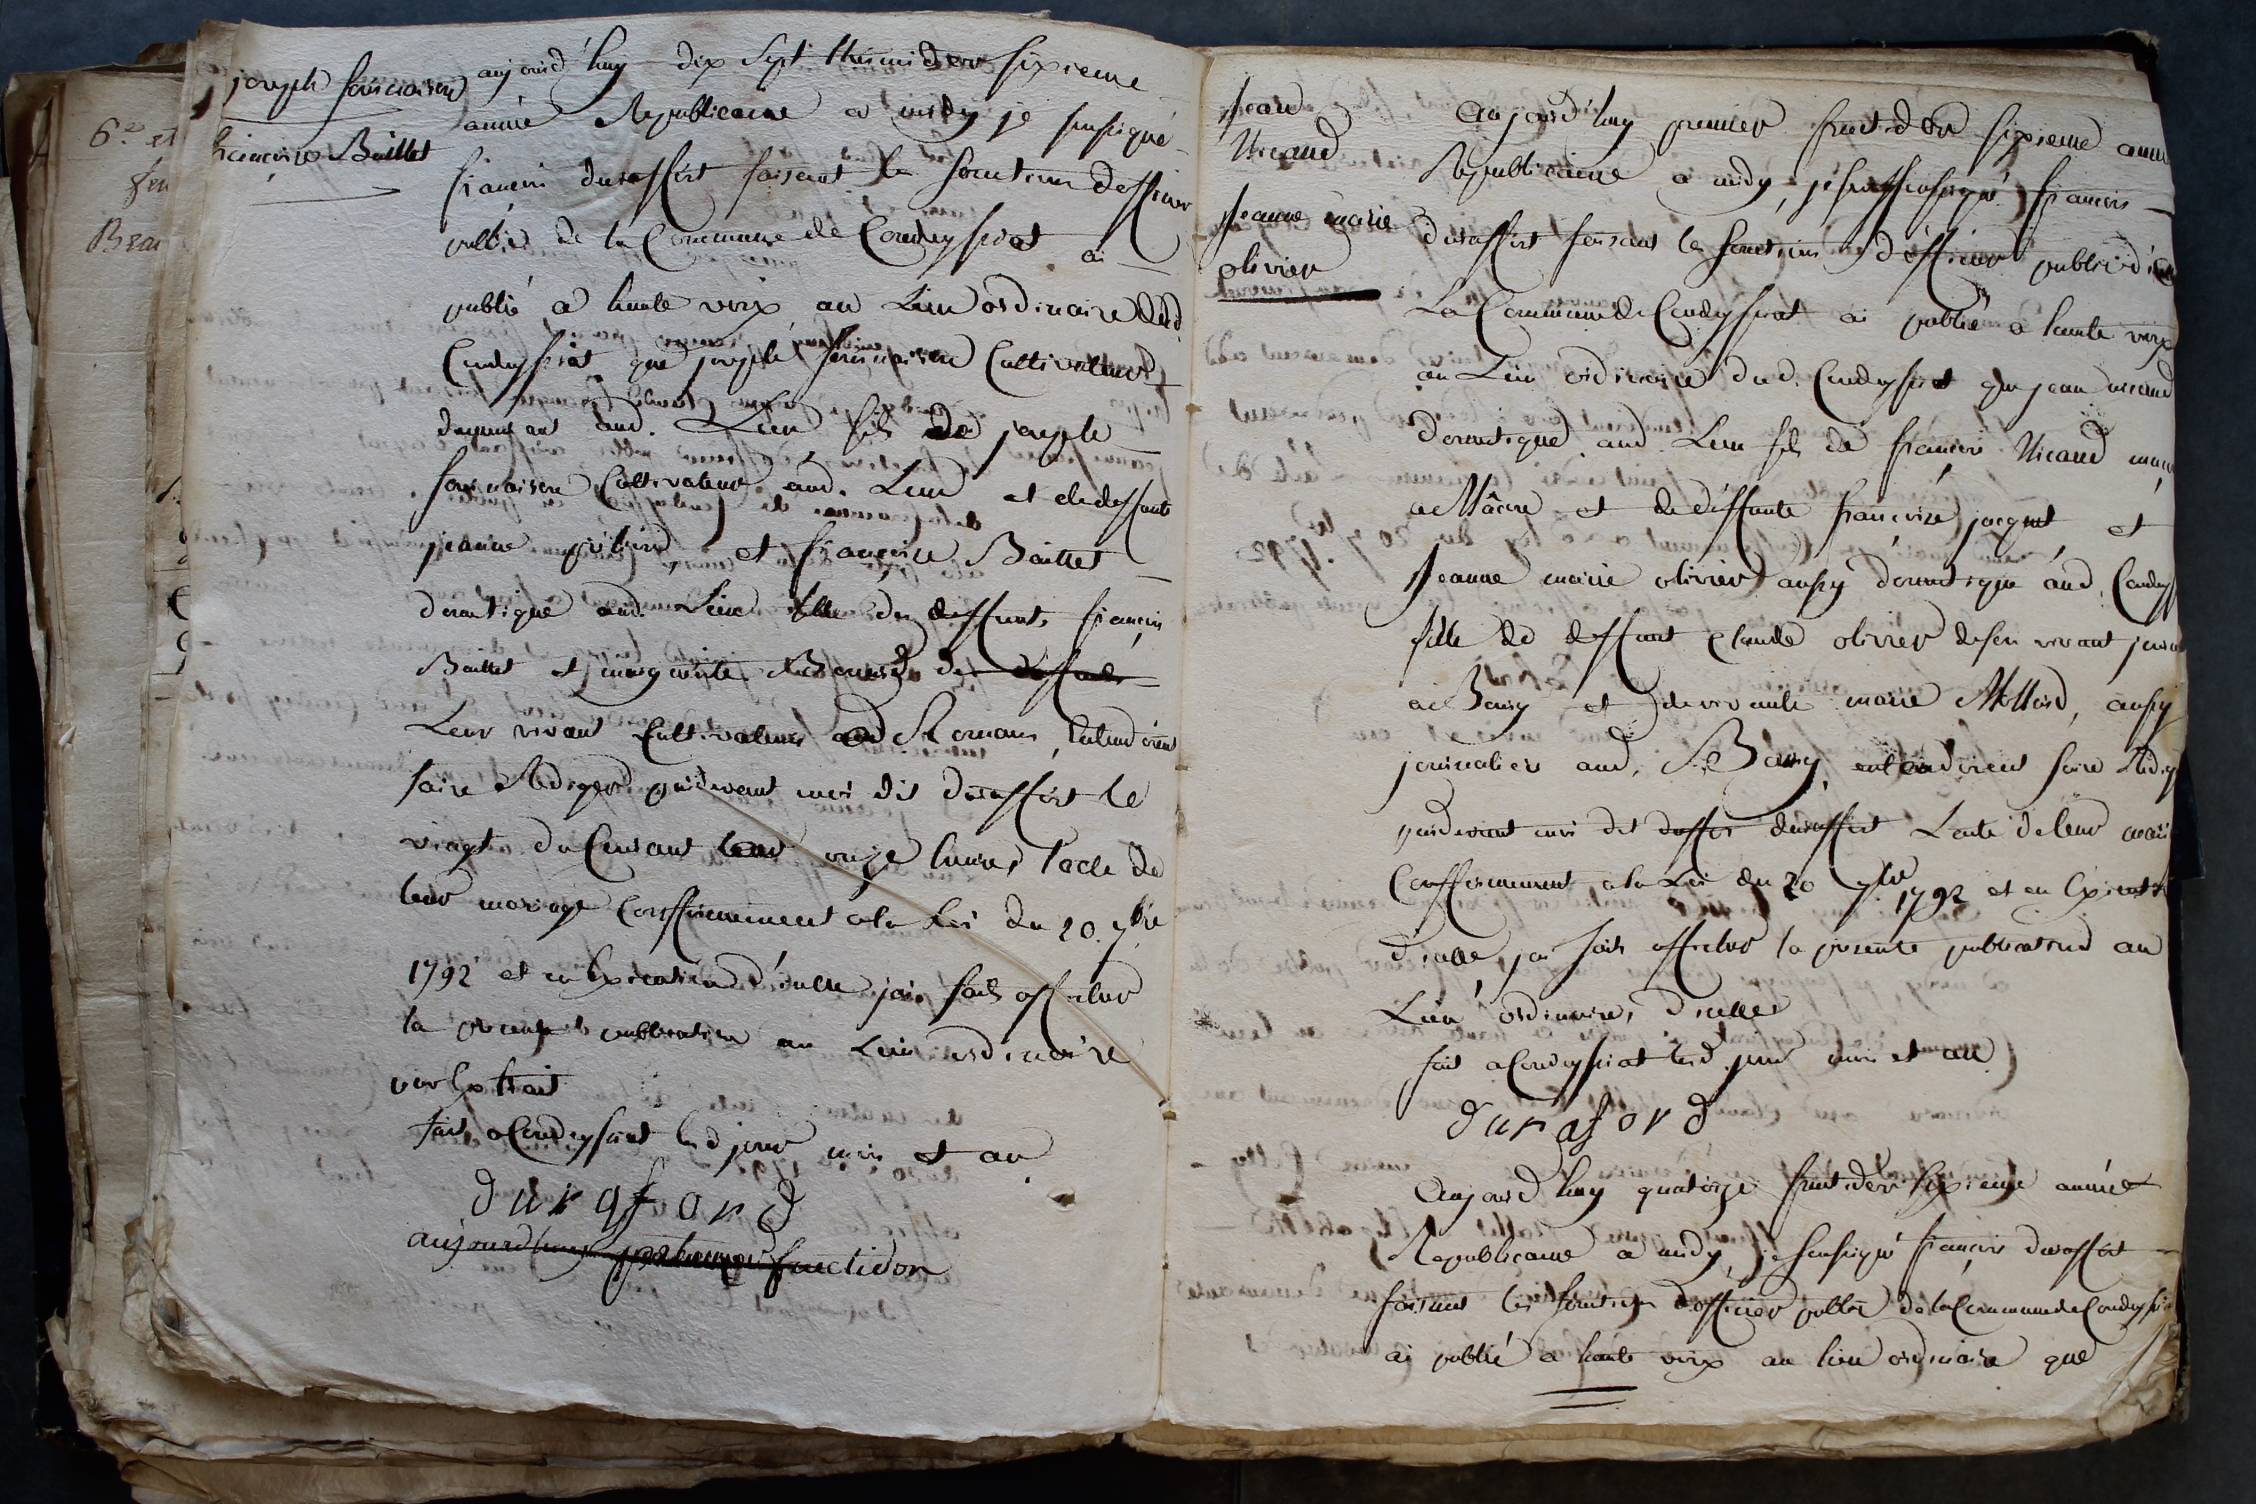 joseph fournaison
francoise Baillet
aujourd'huy dix sept thermidor sixieme
année Republicaine a midy je sousigné
francois duraffort faisant les fonctions dofficier
public de la Commune de Condeyssiat ai
publié a haute voix au Lieu ordinaire dud
Condeyssiat que joseph fournaison Cultivateur
demeurant aud. Lieu fils de joseph
fournaison Cultivateur aud. Lieu et de deffunte
jeanne et francoise Baillet
domestique aud. Lieu fille des deffunts francois
Baillet et marguerite de
Leur vivant Cultivateurs a Romans, Entendoient
faire Rediger pardevant moi dit duraffort le
vingt du Courant onze heures l'acte de
leur mariage Confformement a la Loi du 20. 7bre
1792 et en Execution d'icelle jai fait afficher
la presente publication au Lieu ordinaire
par Extrait
fait a Condeyssiat led jour mois et an
duraford
aujourdhuy fructidor
6.e et
Beau
jean
Uicaud
jeanne marie
olivier
aujourd'huy premier fructidor sixieme anné
Republicaine a midy, je soussigné francois
duraffort faisant les fonctions d'officier public de
La Commune de Condeyssiat ai publié a haute voix
au Lieu ordinaire dud. Condeyssiat que jean uicaud
domestique aud. Lieu fils de francois Uicaud
a Mâcon et de déffunte francoise jacquet, et
jeanne marie olivier aussy domestique aud. Condeyss
fille de deffunt Claude olivier de son vivant journ
a et de vivante marie Mollard, aussy
journaliere aud. entendoient faire Redig
pardevant moi dit duraffort L'acte de leur mari
Confformement a la Loi du 20 7bre 1792 et en Execut
d'icelle jai fait afficher la presente publication au
Lieu ordinaire, d'icelle
fait a Condeyssiat led. jour mois et an
duraford
Aujourd'huy quatorze fructidor sixieme année
Republicaine a midy, je sousigné francois duraffort
faisant les fonctions d'officier public de la Commune de Condeyssi
ai publié a haute voix au lieu ordinaire que